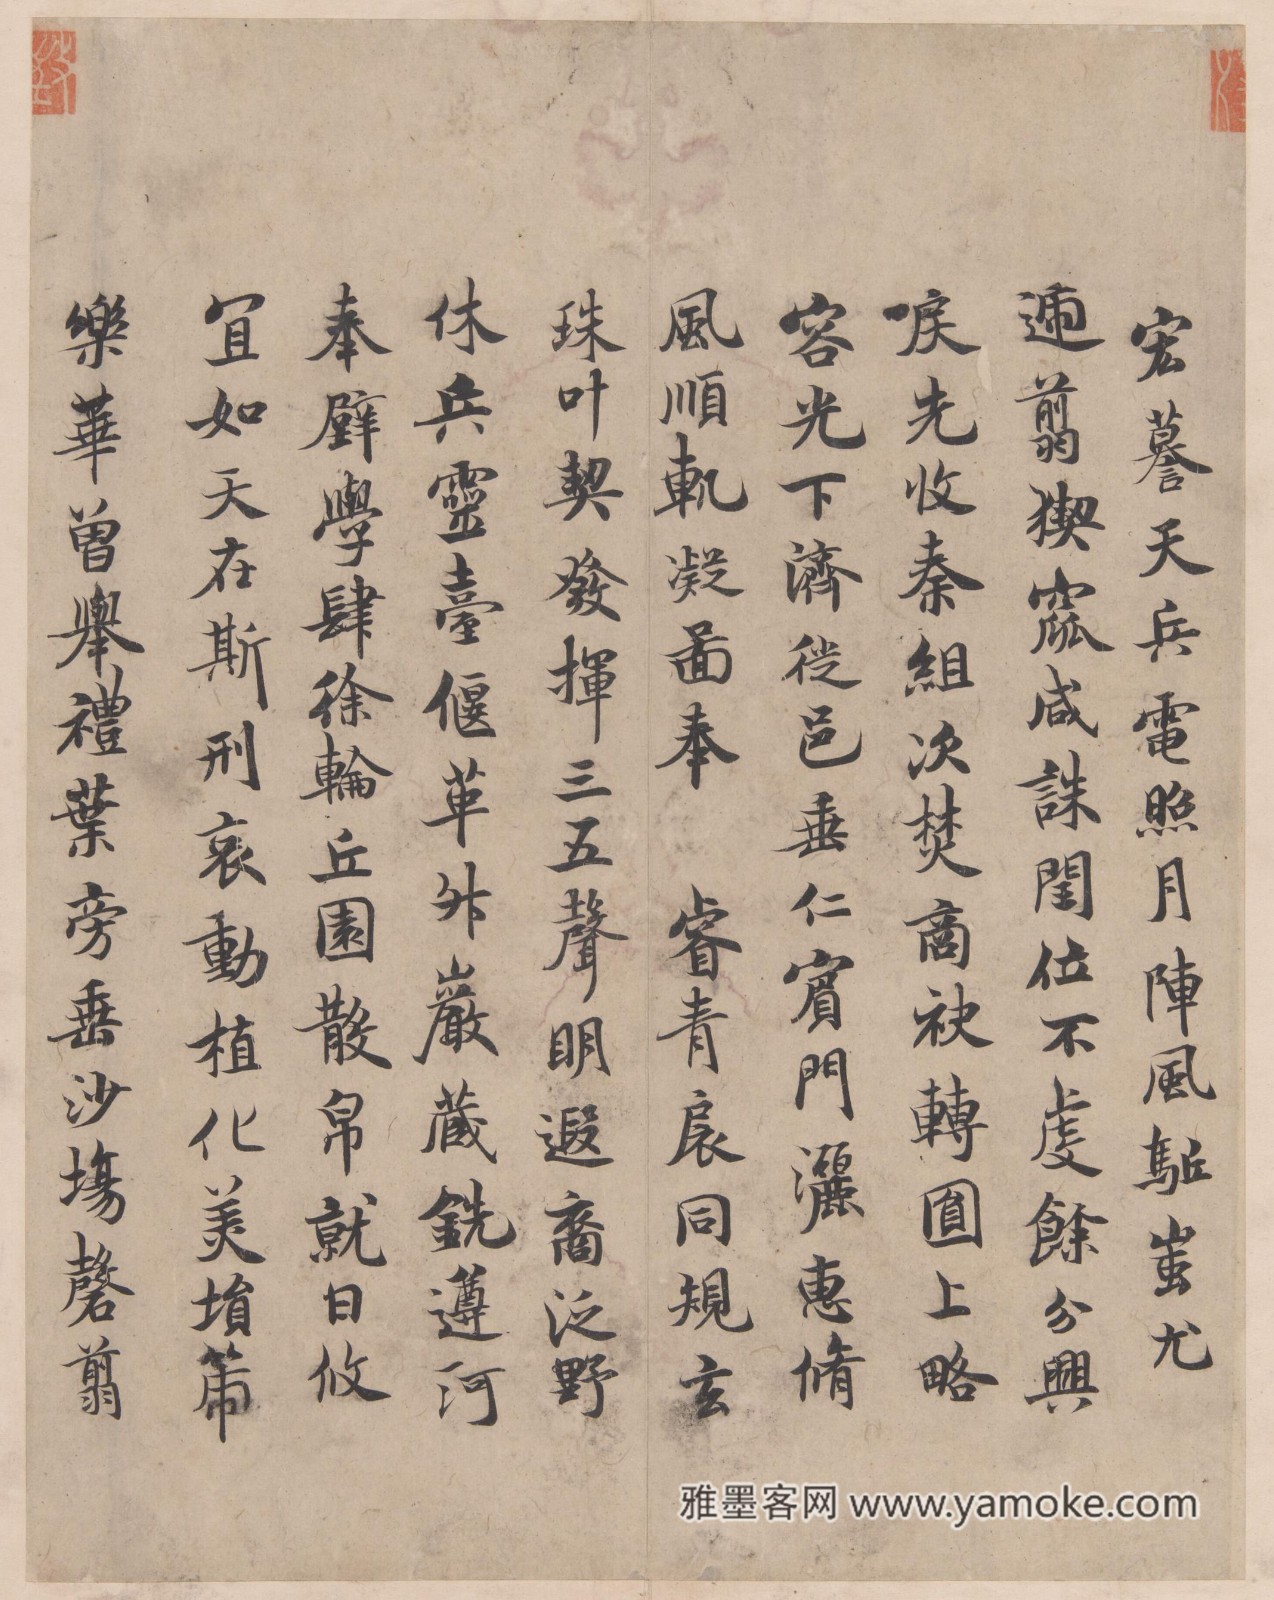 宏謩天兵電照月陣風駈蚩尤
遄翦猰窳咸誅閏位不虔餘分興
唳先收秦組次焚商袂轉圓上略
容光下濟徙邑垂仁賓門灑惠脩
風順軌凝圖奉 睿青扆同規玄
珠叶契發揮三五聲明遐裔泛野
休兵靈臺偃革舛巖蔵銑遵河
奉璧學肆徐輪丘園散帛就日攸
宜如天在斯刑哀動植化美塤箒
樂華曽舉禮葉旁垂沙塲磬翦
雅墨客网 www.yamoke.com